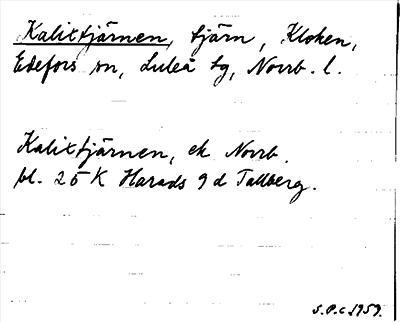 Kalixtjärnen, tjärn, Kloken,
Edefors sn, Luleå tg, Norrb. l.
Kalixtjärnen, ek Norrb.
bl. 25 K Harads 9 d Tallberg.
S.P.C. 1959.